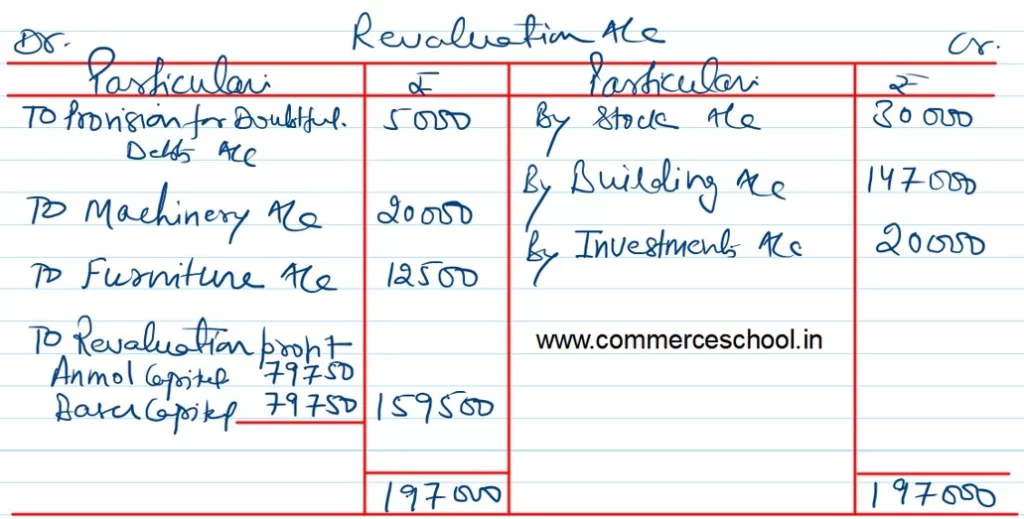 Revaluation A/c
Dr. Cr.
Particulars ₹ Particulars ₹
To Provision for Doubtful 5000 By Stock A/c 30000
Debts A/c
By Building A/c 147000
To Machinery A/c 20000
By Investments A/c 20000
To Furniture A/c 12500
To Revaluation profit
www.commerceschool.in
Anmol Capital 79750
Capital 79750 159500
197000 197000